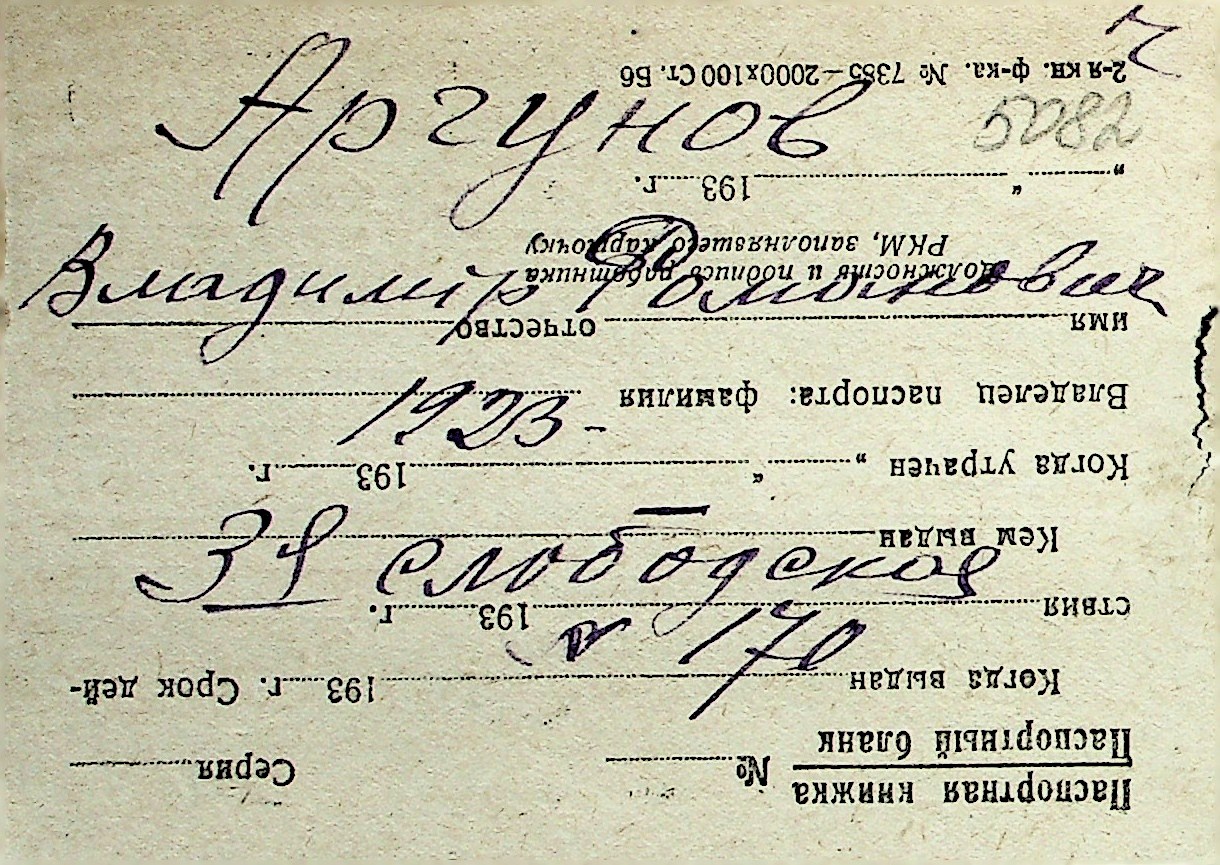 Аргунов
5082
Владимир Романович
1923 -
3я слободская
№ 170
Паспортная книжка
Паспортный бланк № Серия
Когда выдан 193 г. Срок дей-
ствия 193 г.
Кем выдан
Когда утрачен „ “ 193 г.
Владелец паспорта: фамилия
имя отчество
Должность и подпись работника
РКМ, заполнявшего карточку
„ “ 193 г.
2-я кн. ф-ка. № 7385—2000х100 Ст. Б6